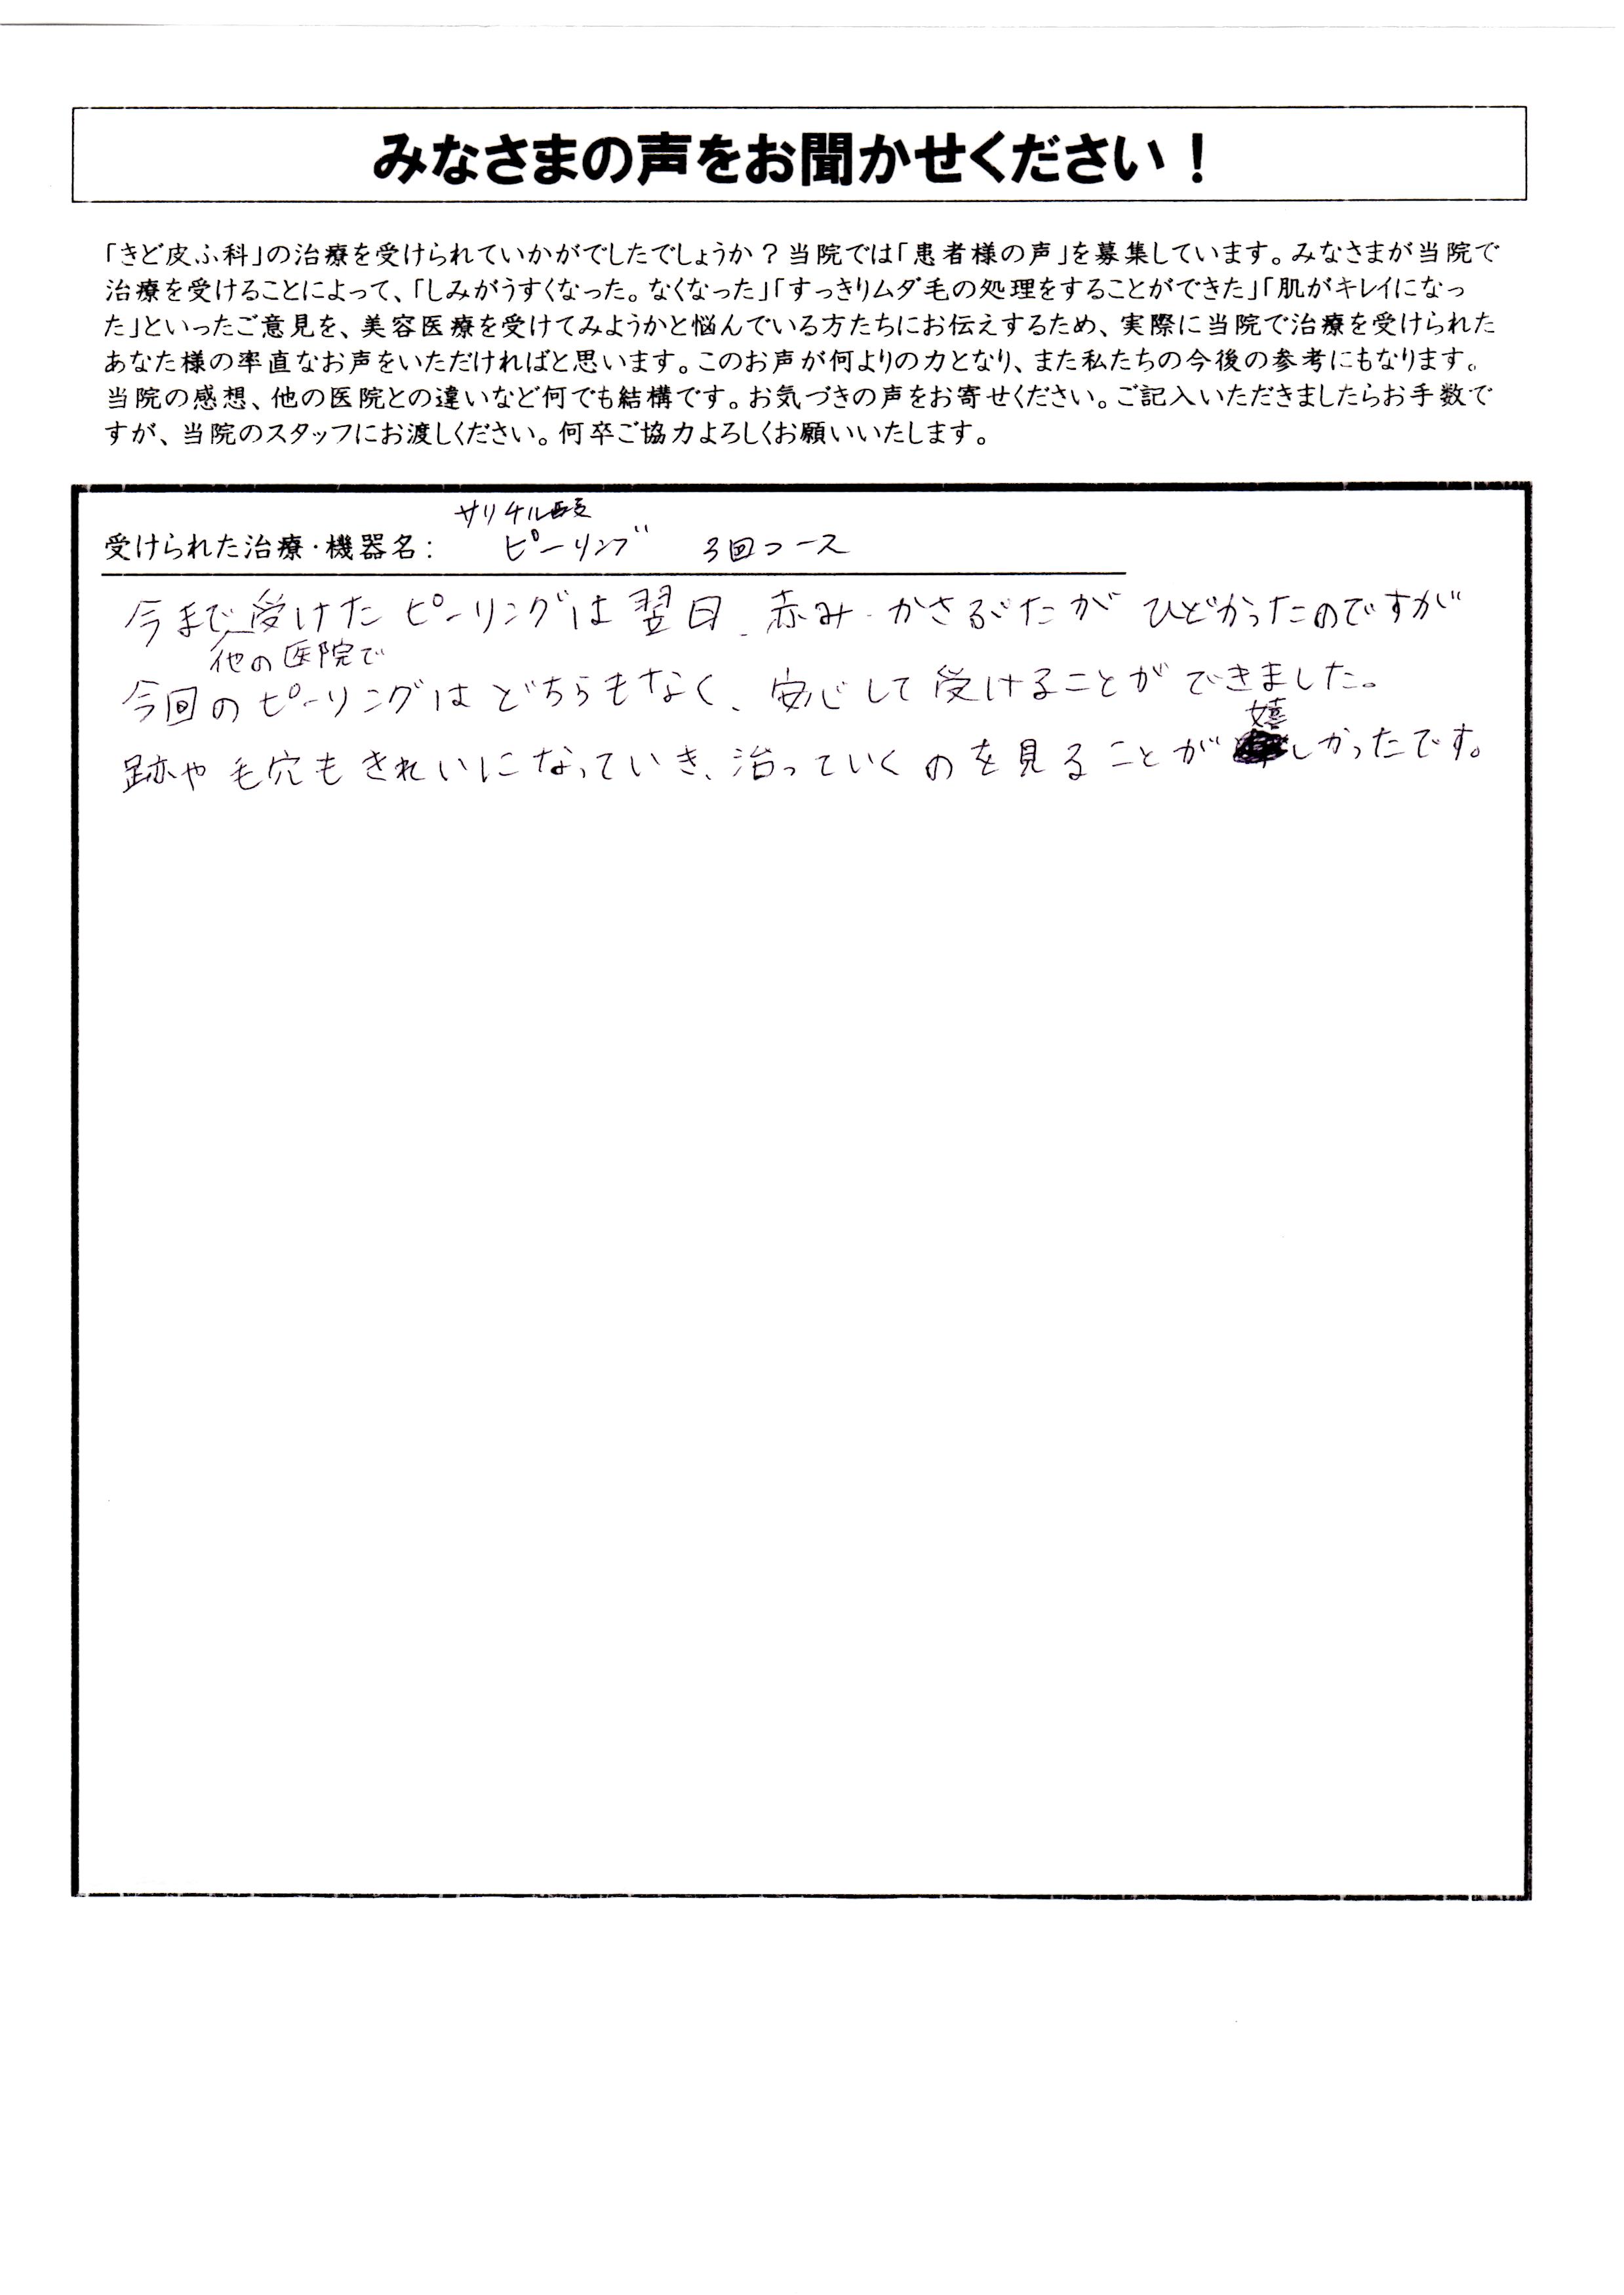 みなさまの声をお聞かせください！
「きど皮ふ科」の治療を受けられていかがでしたでしょうか？当院では「患者様の声」を募集しています。みなさまが当院で
治療を受けることによって、「しみがうすくなった。なくなった」「すっきりムダ毛の処理をすることができた」「肌がキレイになっ
た」といったご意見を、美容医療を受けてみようかと悩んでいる方たちにお伝えするため、実際に当院で治療を受けられた
あなた様の率直なお声をいただければと思います。このお声が何よりの力となり、また私たちの今後の参考にもなります。
当院の感想、他の医院との違いなど何でも結構です。お気づきの声をお寄せください。ご記入いただきましたらお手数で
すが、当院のスタッフにお渡しください。何卒ご協力よろしくお願いいたします。
サリチル酸
受けられた治療・機器名： ピーリング 3回コース
今まで受けたピーリングは翌日、赤み・かさぶたがひどかったのですが
他の医院で
今回のピーリングはどちらもなく、安心して受けることができました。
嬉
跡や毛穴もきれいになっていき、治っていくのを見ることがしかったです。